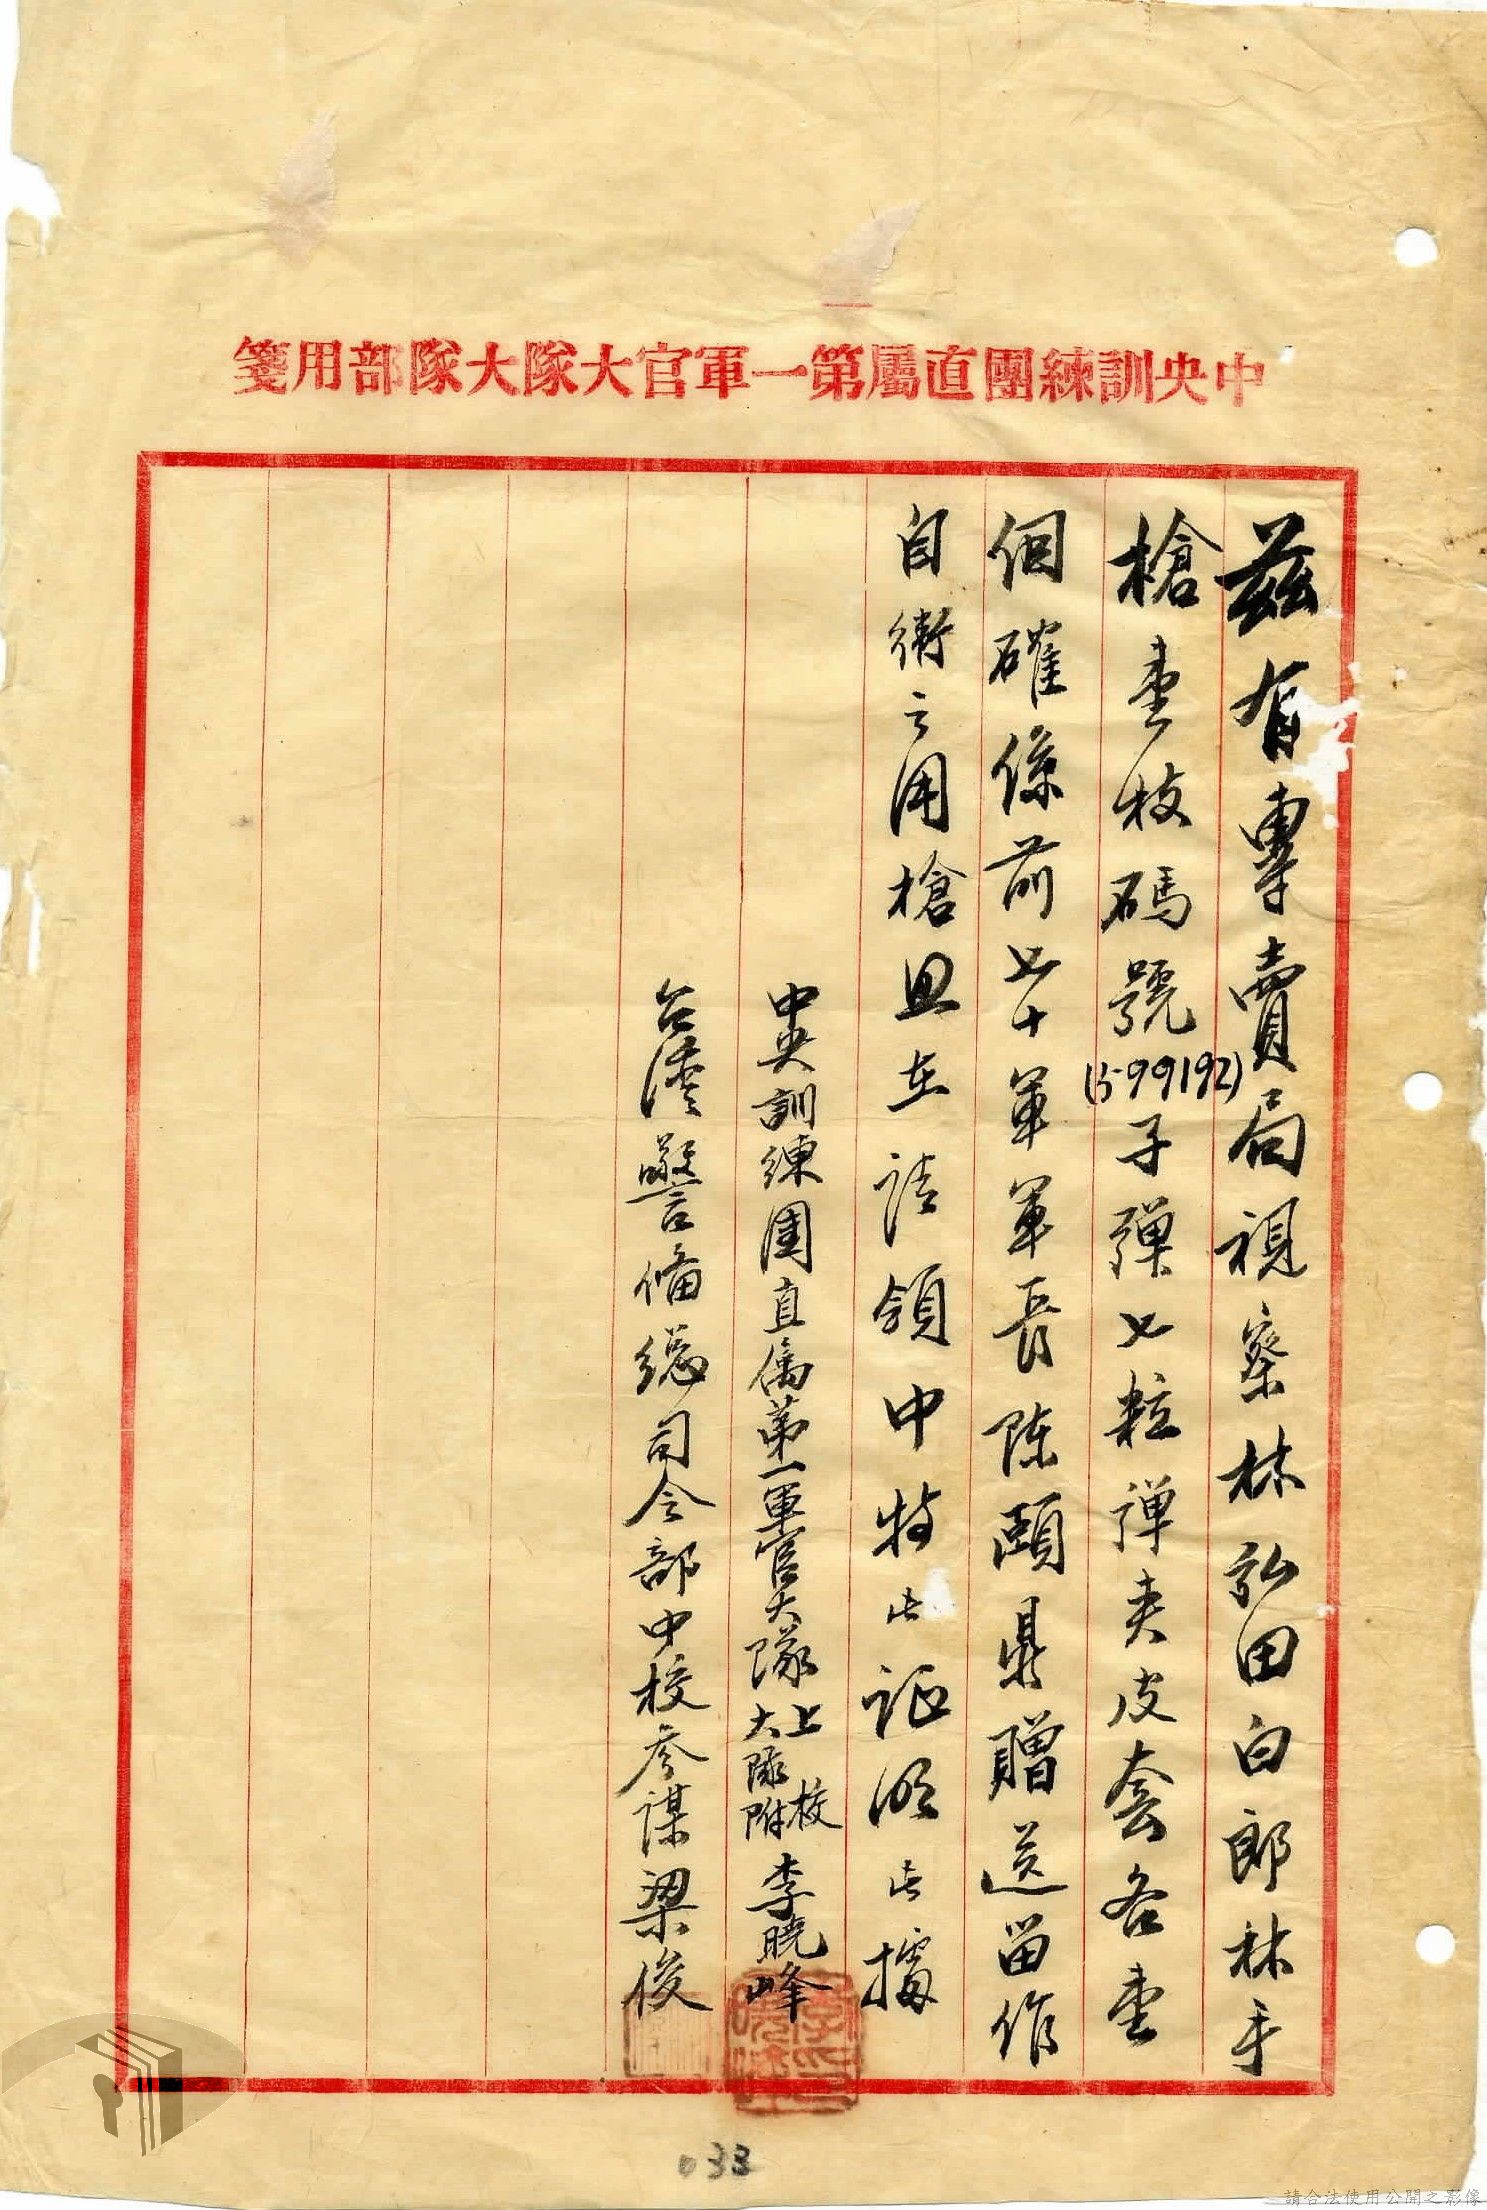 中央訓練團直屬第一軍官大隊大隊部用箋
茲有專賣局視察林弘田白郎林手
槍壹枝碼號(599192)子彈七粒彈夾皮套各壹
個確係前七十軍軍長陳頤鼎贈送留作
自衛之用槍且在請領中特此証明此據
中央訓練團直屬第一軍官大隊上校大隊附李曉峰
台灣警備總司令部中校參謀梁俊
033
請合法使用公開之影像